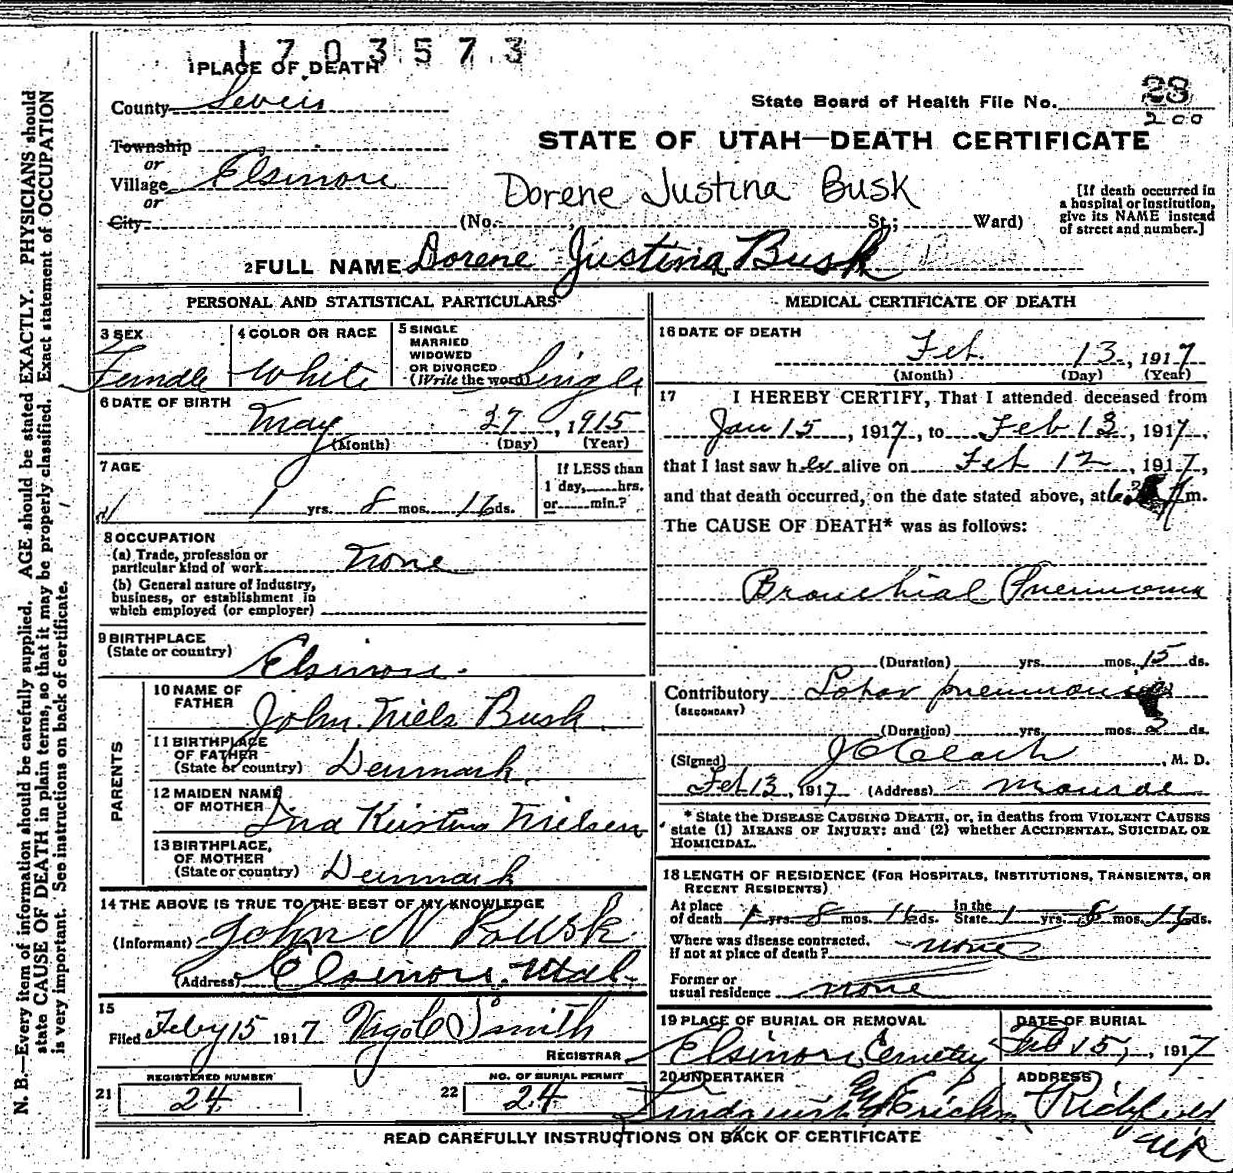 1703573
1 PLACE OF DEATH
County Sevier
State Board of Health File No. 23
200
Township
or
Village Elsinore
or
City
STATE OF UTAH—DEATH CERTIFICATE
Dorene Justina Busk
(No. St.; Ward)
[If death occurred in
a hospital or institution,
give its NAME instead
of street and number.]
2 FULL NAME Dorene Justina Busk
PERSONAL AND STATISTICAL PARTICULARS
3 SEX
Female
4 COLOR OR RACE
White
5 SINGLE
MARRIED
WIDOWED
OR DIVORCED
(Write the word) Single
6 DATE OF BIRTH
May 27, 1915
(Month) (Day) (Year)
7 AGE
1 yrs. 8 mos. 16 ds.
If LESS than
1 day, hrs.
or min.?
8 OCCUPATION
(a) Trade, profession or
particular kind of work None
(b) General nature of industry,
business, or establishment in
which employed (or employer)
9 BIRTHPLACE
(State or country) Elsinore.
PARENTS
10 NAME OF
FATHER John Niels Busk
11 BIRTHPLACE
OF FATHER
(State or country) Denmark
12 MAIDEN NAME
OF MOTHER Kirstine Nielsen
13 BIRTHPLACE,
OF MOTHER
(State or country) Denmark
14 THE ABOVE IS TRUE TO THE BEST OF MY KNOWLEDGE
(Informant) John N Busk
(Address) Elsinore, Utah.
15
Filed Feby 15 1917 Smith
REGISTRAR
21 REGISTERED NUMBER
24
22 NO. OF BURIAL PERMIT
24
MEDICAL CERTIFICATE OF DEATH
16 DATE OF DEATH
Feb. 13, 1917
(Month) (Day) (Year)
17 I HEREBY CERTIFY, That I attended deceased from
Jan 15, 1917, to Feb 13, 1917,
that I last saw her alive on Feb 12, 1917,
and that death occurred, on the date stated above, at m.
The CAUSE OF DEATH* was as follows:
Bronchial Pneumonia
(Duration) yrs. mos. 15 ds.
Contributory Lobar pneumonia
(SECONDARY)
(Duration) yrs. mos. ds.
(Signed) , M. D.
Feb 13, 1917 (Address) Monroe
* State the DISEASE CAUSING DEATH, or, in deaths from VIOLENT CAUSES
state (1) MEANS OF INJURY; and (2) whether ACCIDENTAL, SUICIDAL OR
HOMICIDAL.
18 LENGTH OF RESIDENCE (FOR HOSPITALS, INSTITUTIONS, TRANSIENTS, OR
RECENT RESIDENTS)
At place In the
of death 1 yrs. 8 mos. 16 ds. State 1 yrs. 8 mos. 16 ds.
Where was disease contracted.
If not at place of death? none
Former or
usual residence none
19 PLACE OF BURIAL OR REMOVAL
Elsinore Cemetery
DATE OF BURIAL
Feb 15, 1917
20 UNDERTAKER
ADDRESS
Richfield
READ CAREFULLY INSTRUCTIONS ON BACK OF CERTIFICATE
N. B.—Every item of information should be carefully supplied. AGE should be stated EXACTLY. PHYSICIANS should
state CAUSE OF DEATH in plain terms, so that it may be properly classified. Exact statement of OCCUPATION
is very important. See instructions on back of certificate.